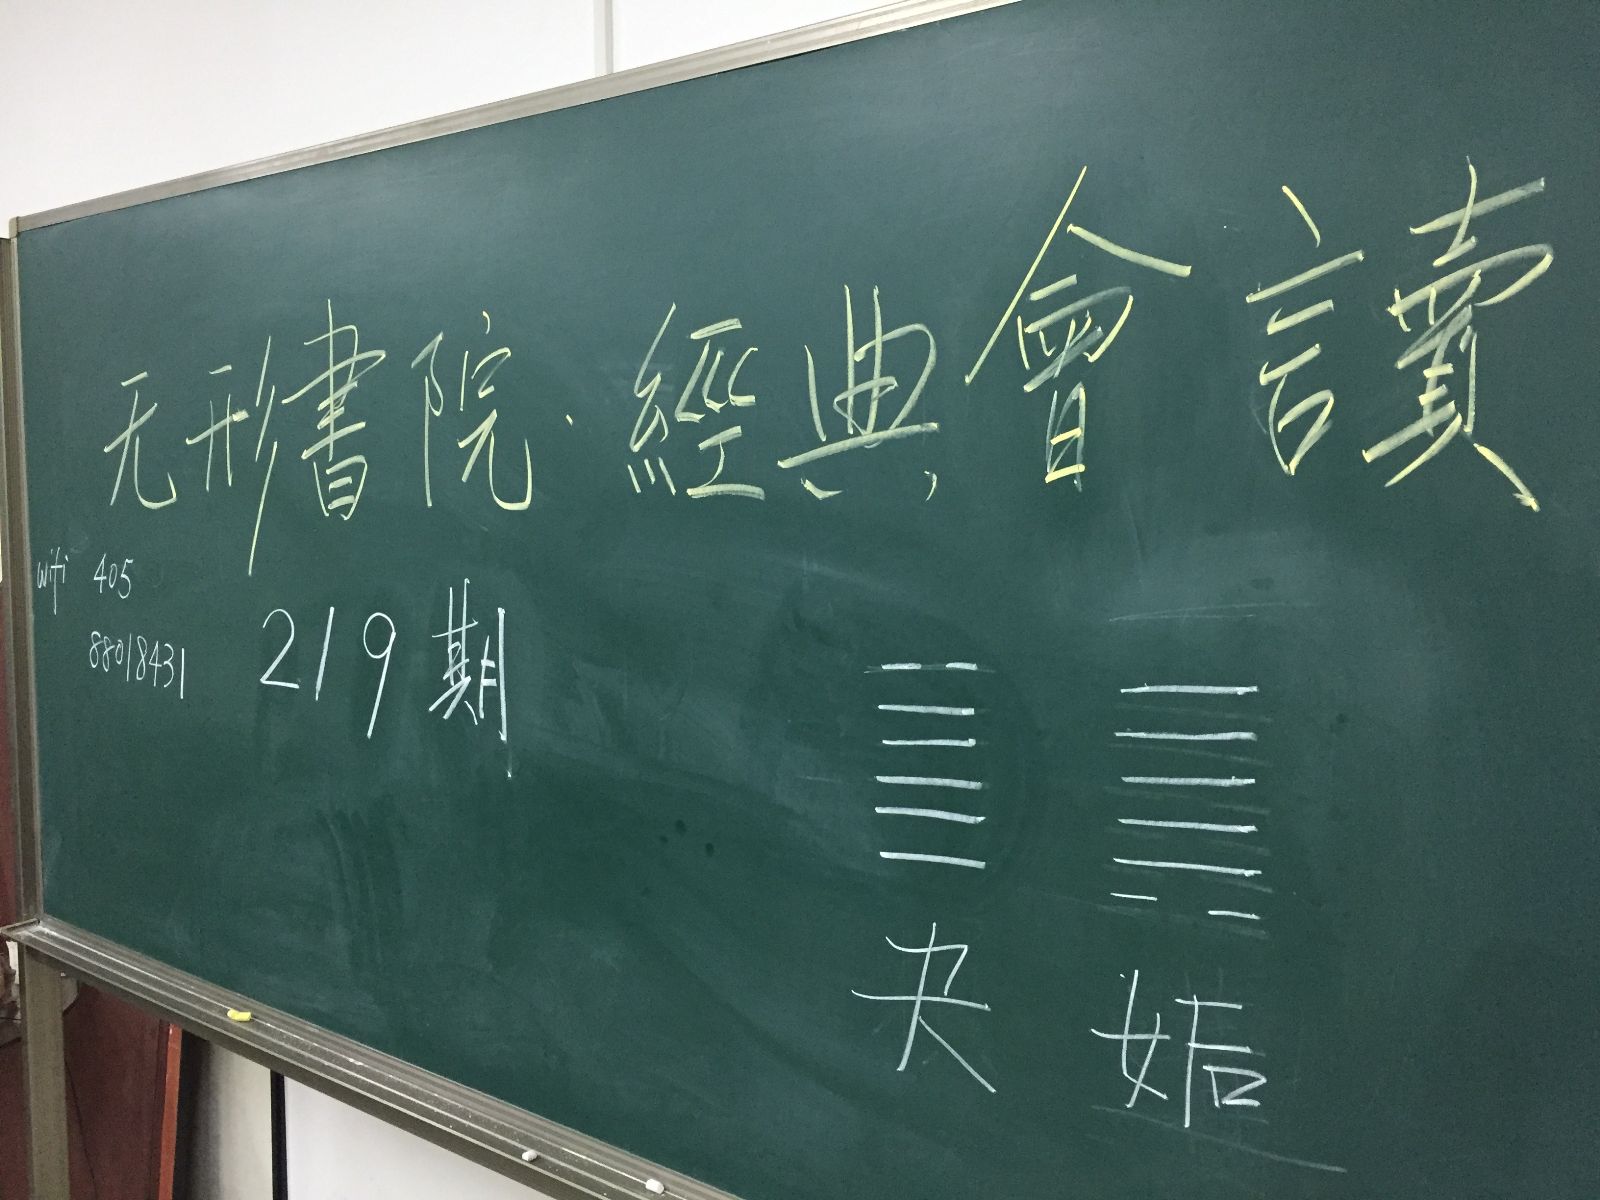 无形書院·經典會讀
wifi 405
88018431
219期
夬 姤